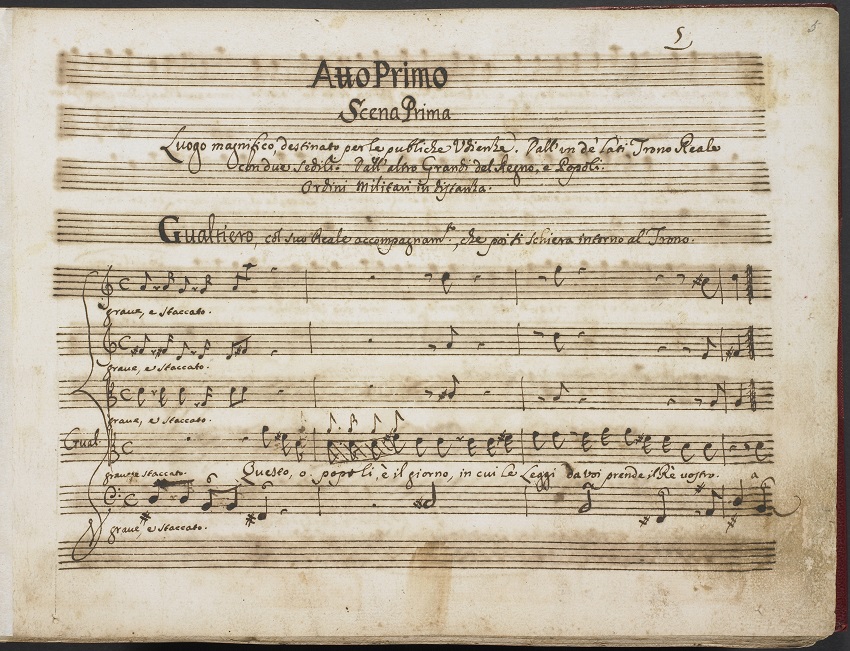 5
5
Atto Primo
Scena Prima
Luogo magnifico, destinato per le publiche Udienze. Dall'un de' lati Trono Reale
con due sedili. Dall'altro Grandi del Regno, e Popoli.
Ordini Militari in distanza.
Gualtiero, col suo Reale accompagnam.to, che poi si schiera intorno al Trono.
graue, e staccato.
graue, e staccato.
graue, e staccato.
Gual.
graue e staccato.
Questo, o popoli, è il giorno, in cui le Leggi da voi prende il Rè vostro. a
graue e staccato.